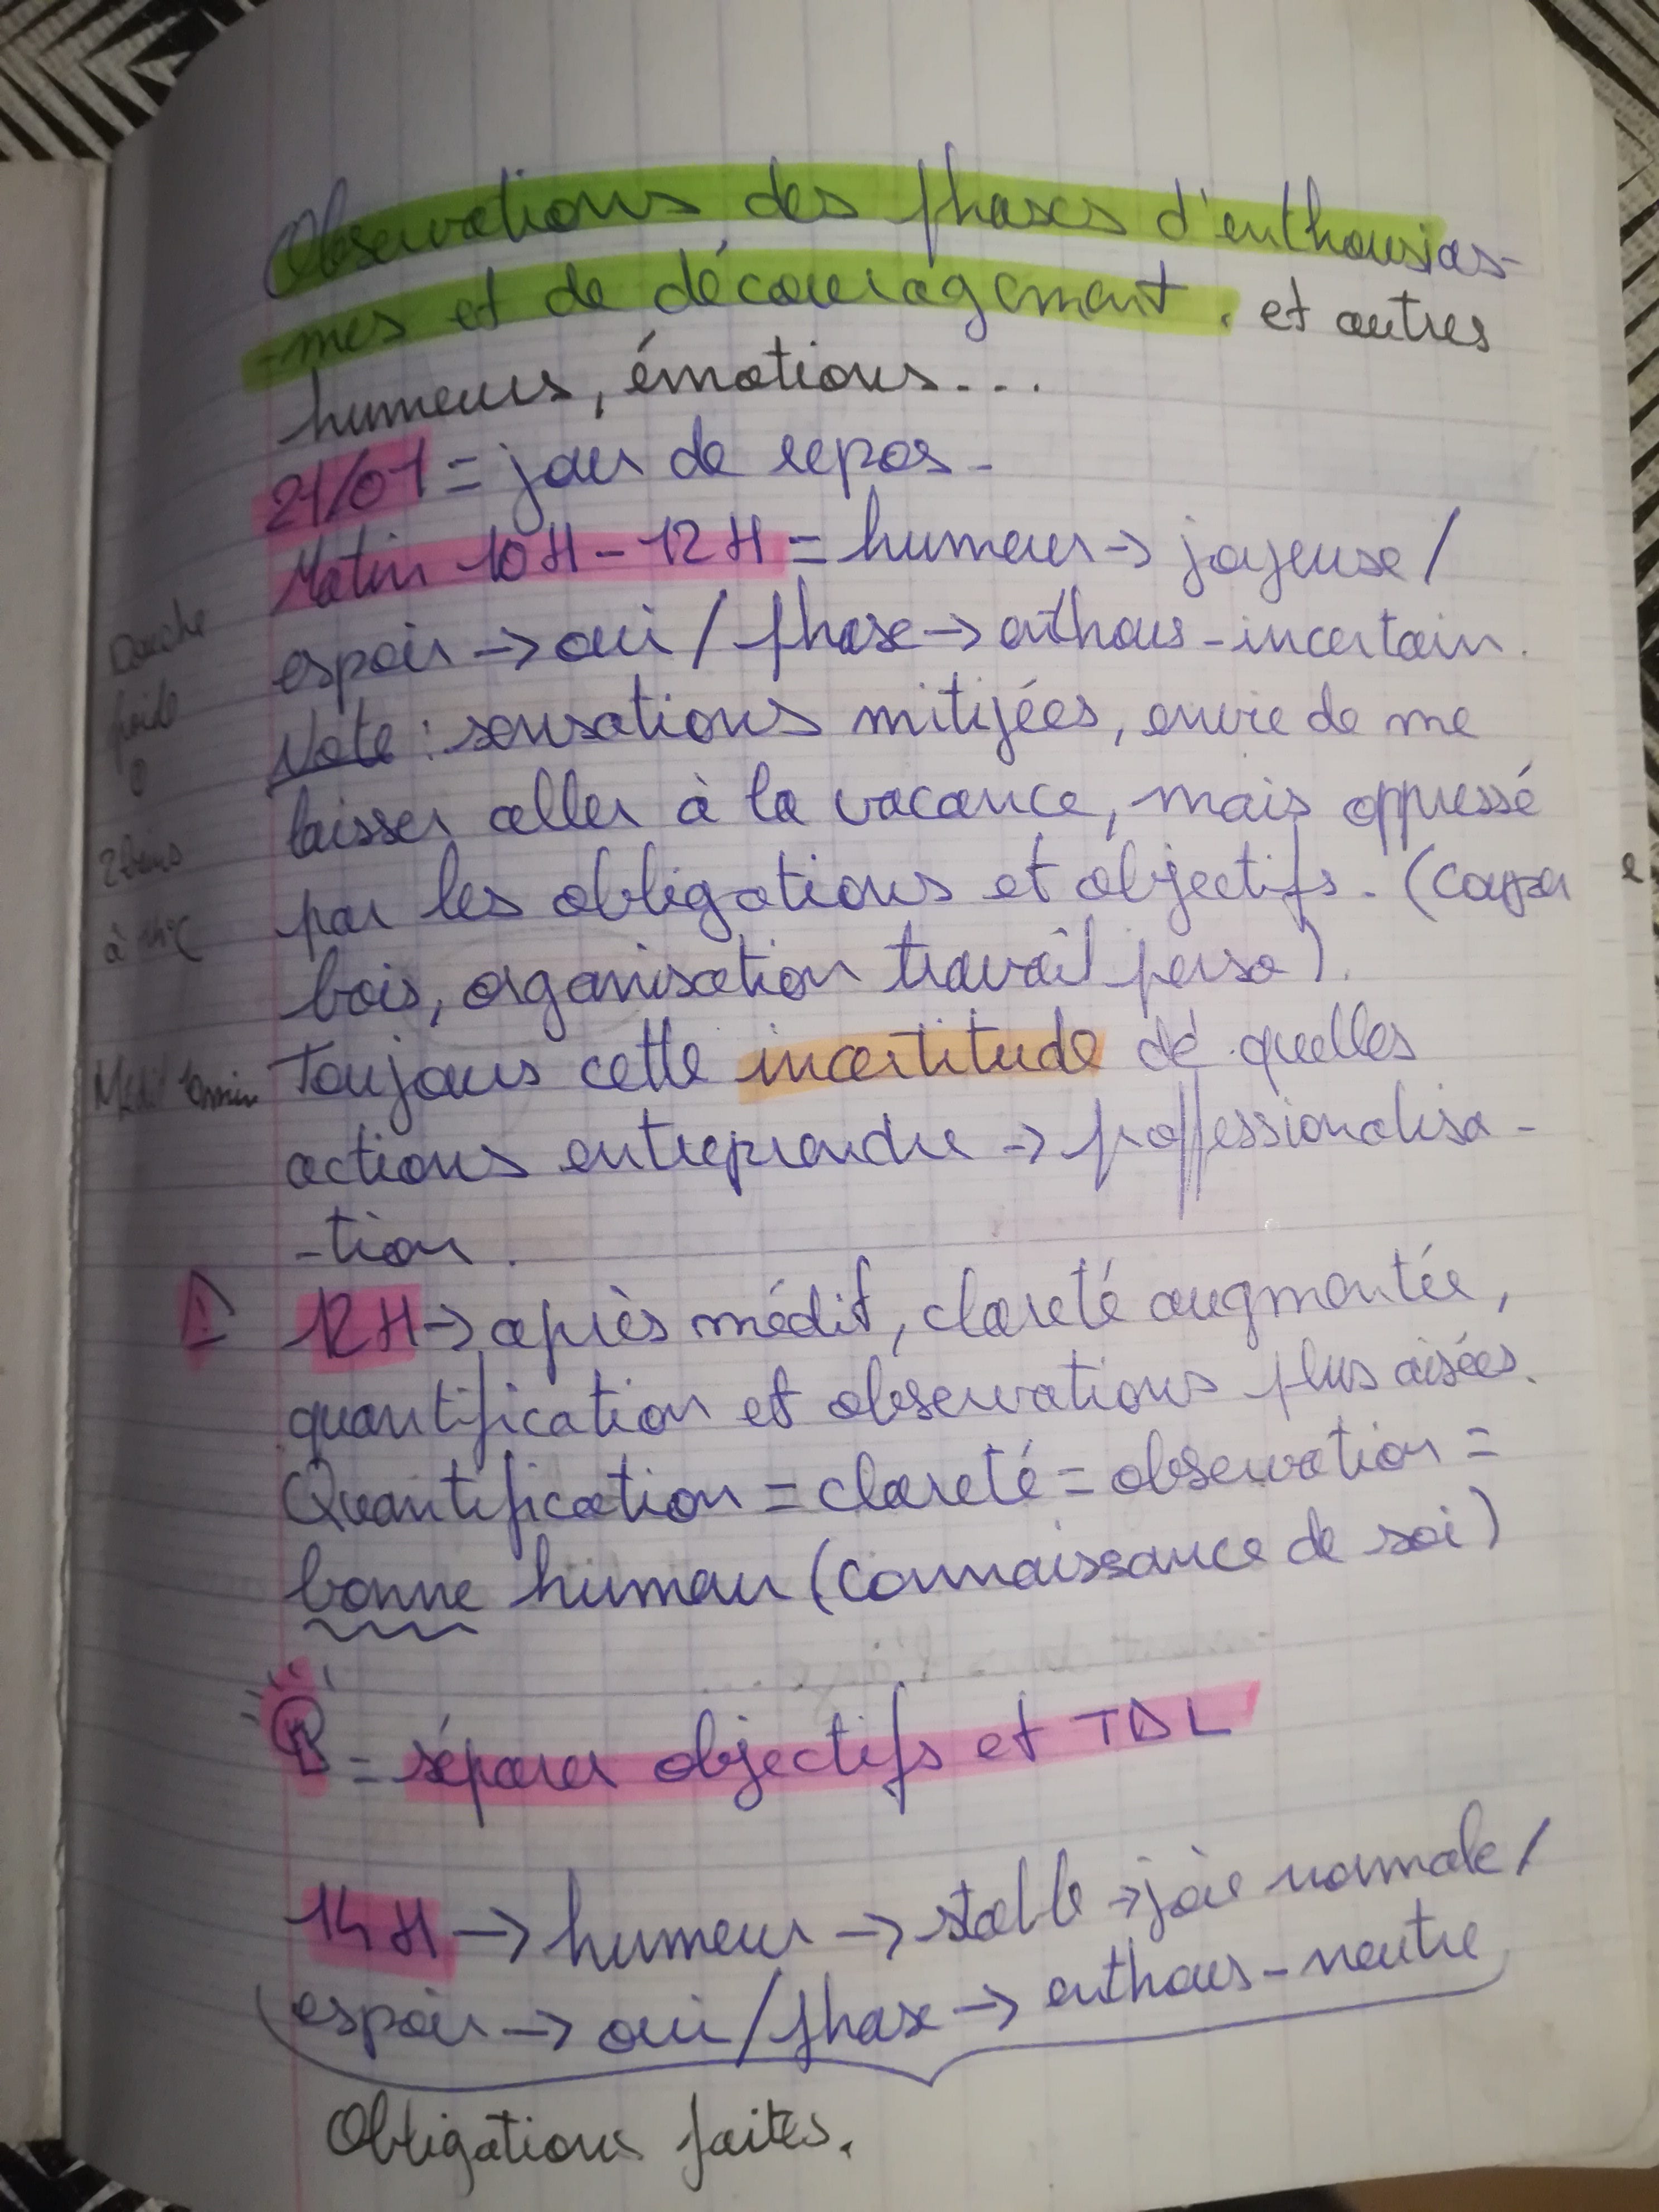 Observations des phases d'enthousias-
-mes et de découragement. et autres
humeurs, émotions...
21/01 = jour de repos -
Matin 10H - 12H = humeur -> joyeuse /
espoir -> oui / phase -> enthous - incertain.
Note : sensations mitijées, envie de me
laisser aller à la vacance, mais oppressé
par les obligations et objectifs. (Couper
bois, organisation travail perso).
Toujours cette incertitude de quelles
actions entreprendre -> proffessionalisa -
-tion.
12H -> après médit, clareté augmentée,
quantification et observations plus aisées.
Quantification = clareté = observation =
bonne humeur (connaissance de soi)
= séparer objectifs et TDL
14H -> humeur -> stable -> joie normale /
espoir -> oui / phase -> enthous - neutre
Obligations faites.
Douche
froide
à 14°C
Médit 10min